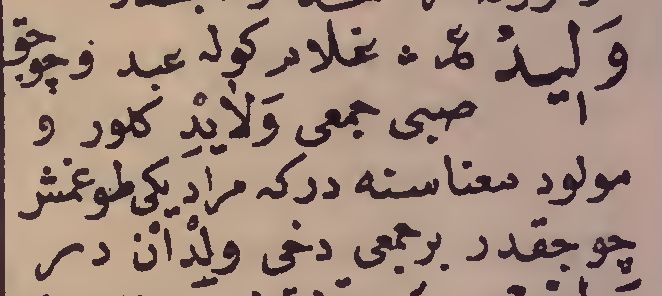 وَلِيدُ عر غلام کوله عبد و چوجق
صبی جمعی وَلَايِدْ کلور و
مولود معناسنه در که مراد یکی طوغمش
چوجقدر بر جمعی دخی ولِدْاَنْ در